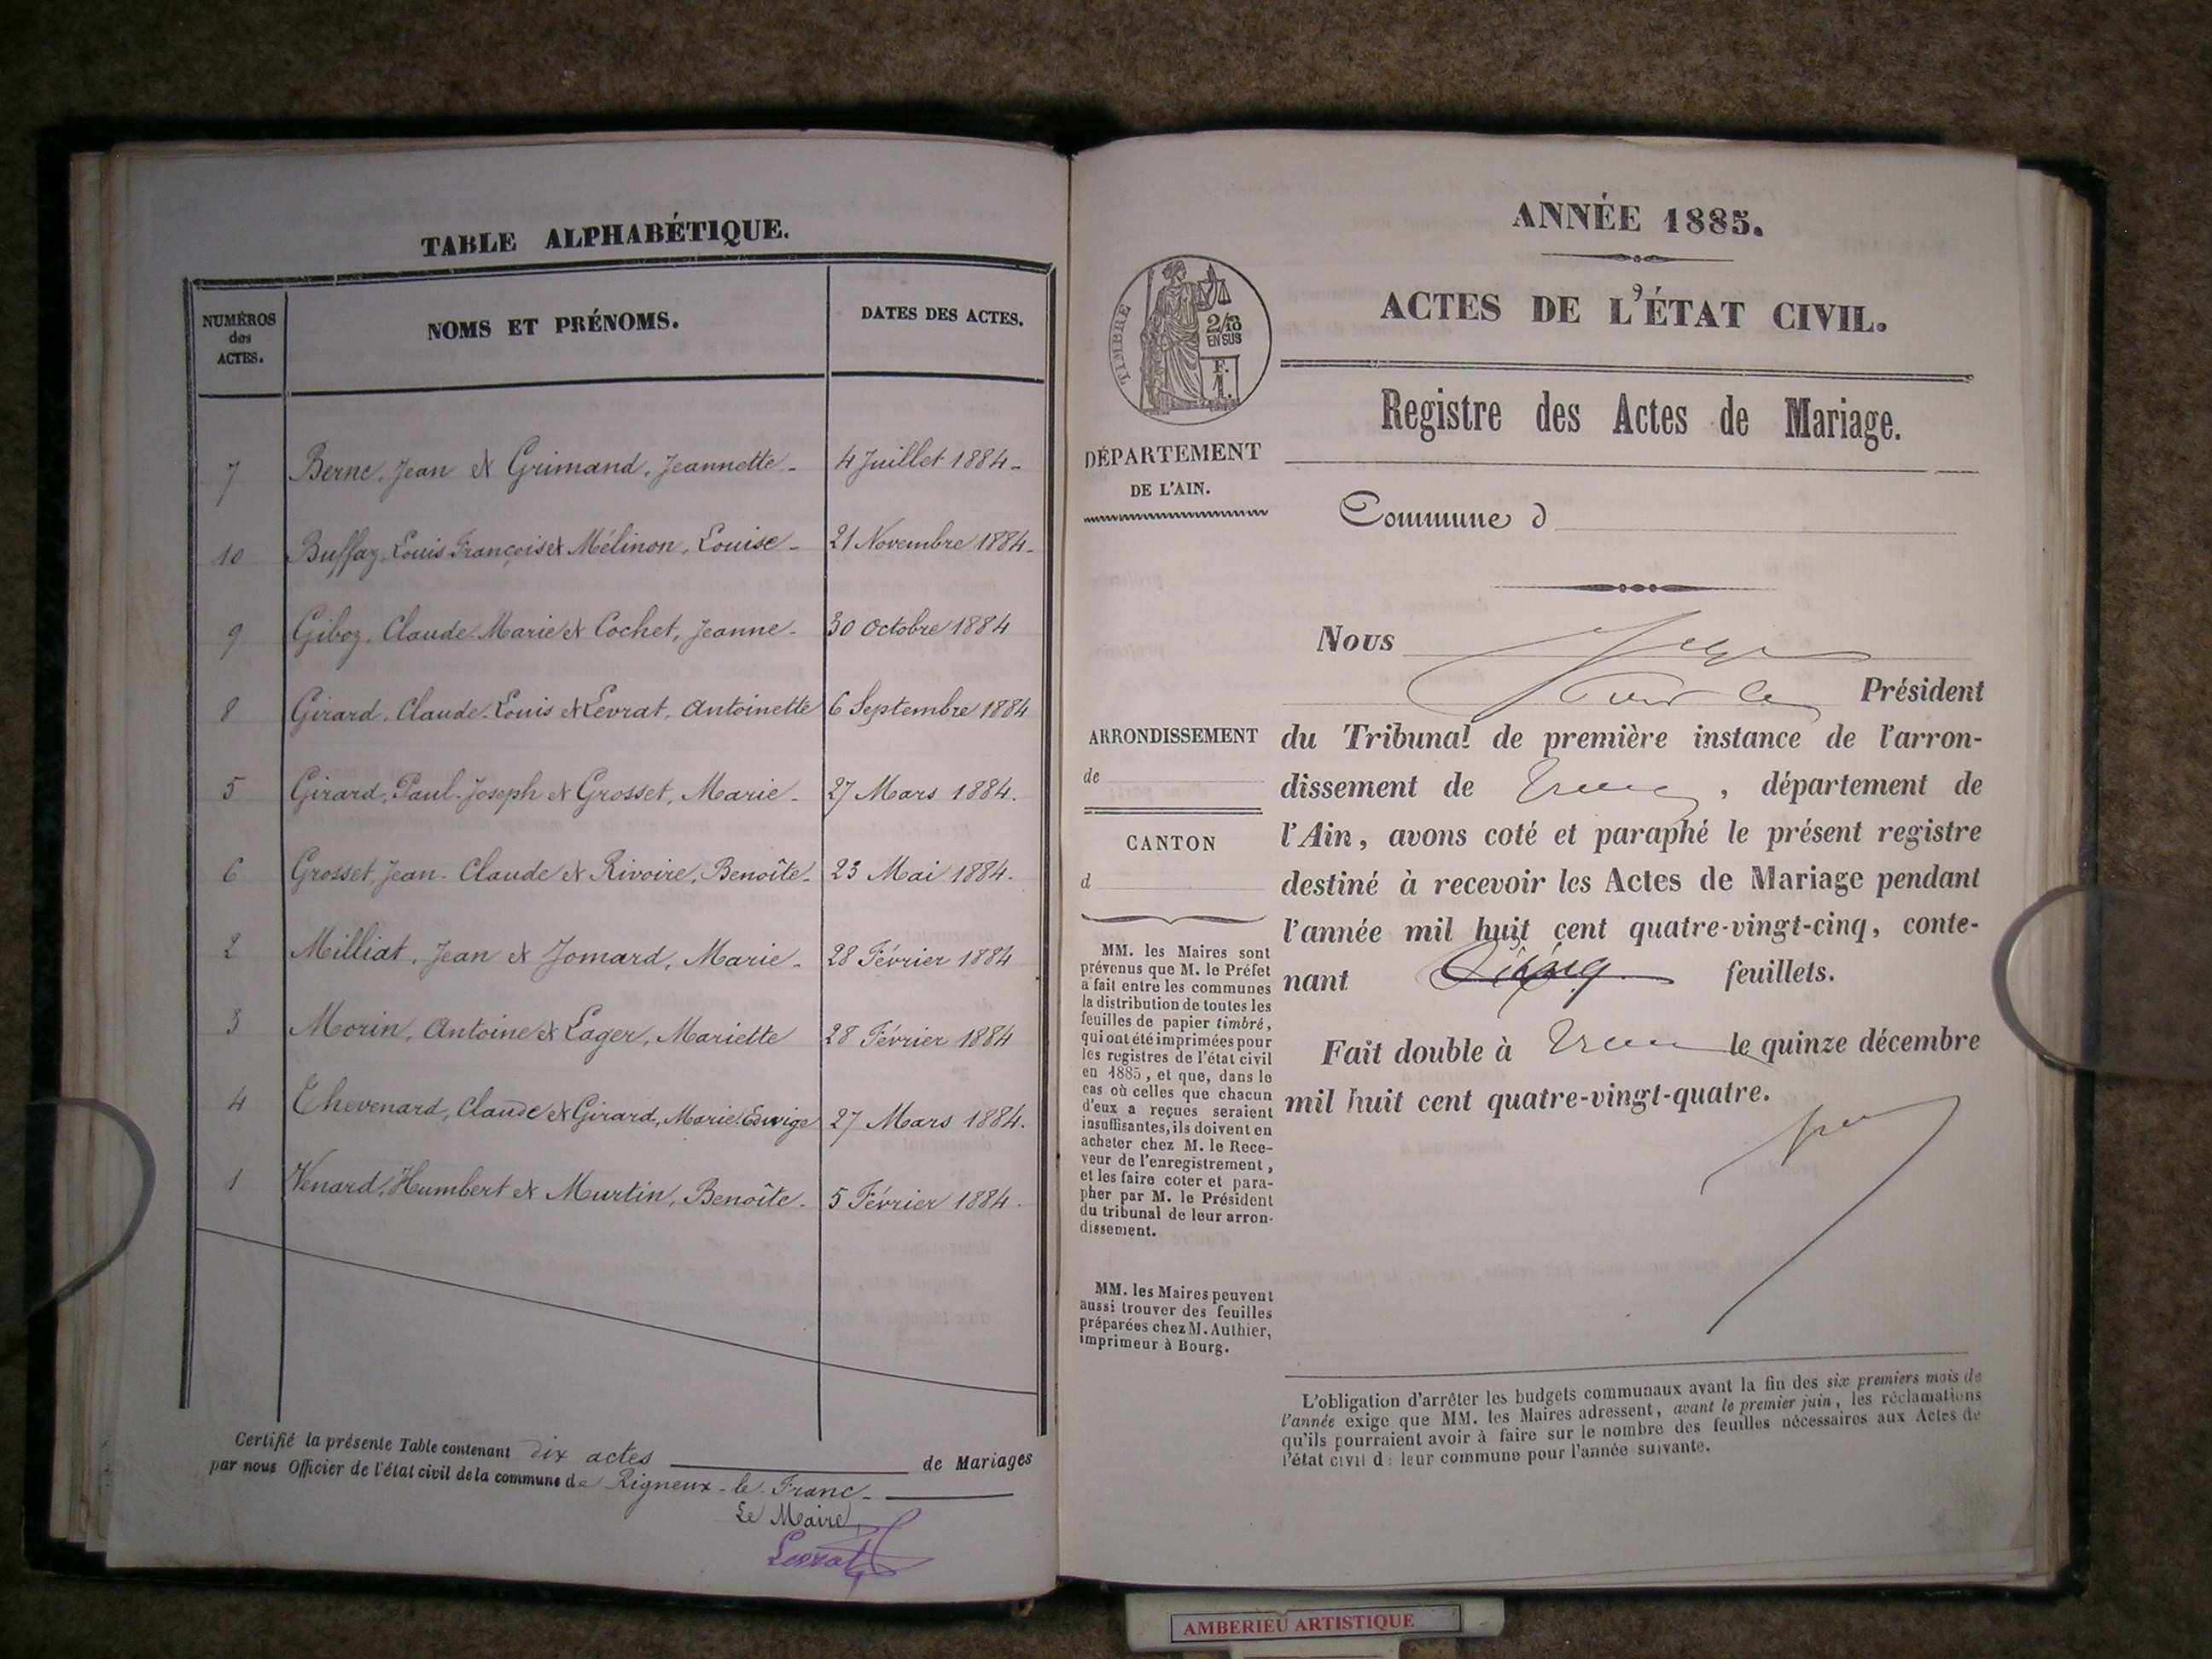 TABLE ALPHABÉTIQUE.
NUMÉROS
des
ACTES.
NOMS ET PRÉNOMS.
DATES DES ACTES.
7 Berne, Jean et Grimand, Jeannette - 4 Juillet 1884 -
10 Buffaz, Louis François et Mélinon, Louise - 21 Novembre 1884 -
9 Giboz, Claude Marie et Cochet, Jeanne - 30 Octobre 1884
8 Girard, Claude-Louis et Levrat, Antoinette 6 Septembre 1884
5 Girard, Paul-Joseph et Grosset, Marie - 27 Mars 1884.
6 Grosset, Jean-Claude et Rivoire, Benoîte - 23 Mai 1884.
2 Milliat, Jean et Jomard, Marie - 28 Février 1884
3 Morin, Antoine et Lager, Mariette 28 Février 1884
4 Thevenard, Claude et Girard, Marie Edwige 27 Mars 1884.
1 Venard, Humbert et Murtin, Benoîte - 5 Février 1884.
Certifié la présente Table contenant dix actes de Mariages
par nous Officier de l'état civil de la commune de Rigneux-le-Franc
Le Maire,
Levrat
ANNÉE 1885.
ACTES DE L'ÉTAT CIVIL.
TIMBRE
2/10
EN SUS
F.
1.
Registre des Actes de Mariage.
DÉPARTEMENT
DE L'AIN.
Commune d
Nous
Président
ARRONDISSEMENT
de
CANTON
d
du Tribunal de première instance de l'arron-
dissement de , département de
l'Ain, avons coté et paraphé le présent registre
destiné à recevoir les Actes de Mariage pendant
l'année mil huit cent quatre-vingt-cinq, conte-
nant feuillets.
Fait double à le quinze décembre
mil huit cent quatre-vingt-quatre.
MM. les Maires sont
prévenus que M. le Préfet
a fait entre les communes
la distribution de toutes les
feuilles de papier timbré,
qui ont été imprimées pour
les registres de l'état civil
en 1885, et que, dans le
cas où celles que chacun
d'eux a reçues seraient
insuffisantes, ils doivent en
acheter chez M. le Rece-
veur de l'enregistrement,
et les faire coter et para-
pher par M. le Président
du tribunal de leur arron-
dissement.
MM. les Maires peuvent
aussi trouver des feuilles
préparées chez M. Authier,
imprimeur à Bourg.
L'obligation d'arrêter les budgets communaux avant la fin des six premiers mois de
l'année exige que MM. les Maires adressent, avant le premier juin, les réclamations
qu'ils pourraient avoir à faire sur le nombre des feuilles nécessaires aux Actes de
l'état civil de leur commune pour l'année suivante.
AMBERIEU ARTISTIQUE